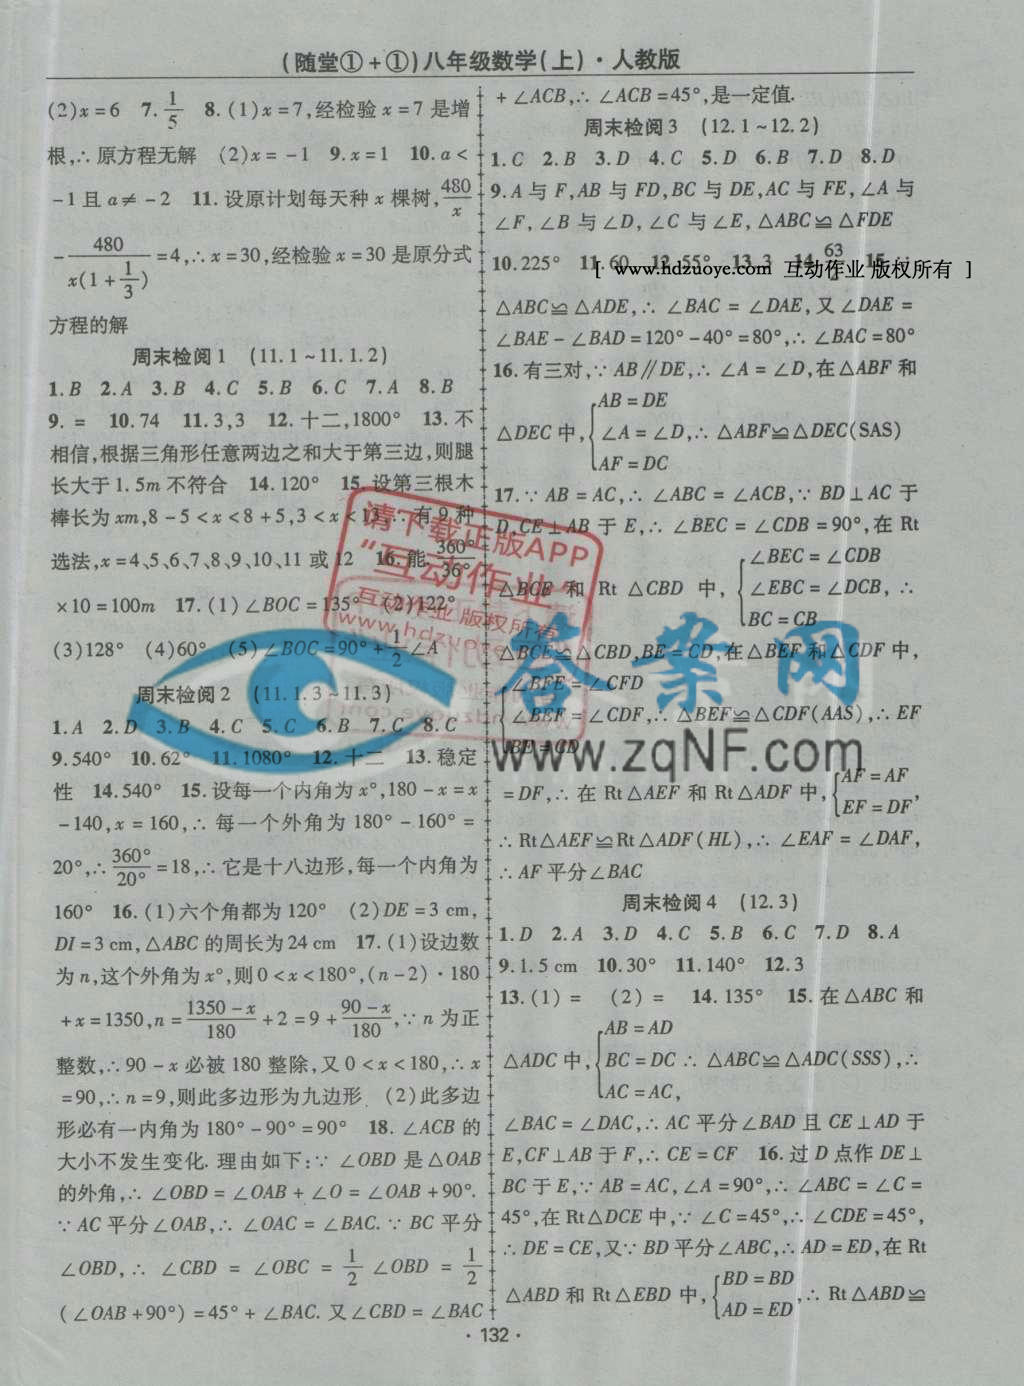 (随堂①+①)八年级数学(上)·人教版
(2)x=6 7. 1/5 8.(1)x=7,经检验x=7是增
根,∴原方程无解 (2)x=-1 9.x=1 10.a<
-1且a≠-2 11.设原计划每天种x棵树,480/x
- 480/x(1+1/3) =4,∴x=30,经检验x=30是原分式
方程的解
周末检阅1 (11.1~11.1.2)
1.B 2.A 3.B 4.C 5.B 6.C 7.A 8.B
9.= 10.74 11.3,3 12.十二,1800° 13.不
相信,根据三角形任意两边之和大于第三边,则腿
长大于1.5m不符合 14.120° 15.设第三根木
棒长为xm,8-5<x<8+5,3<x<13,∴有9种
选法,x=4、5、6、7、8、9、10、11或12 16.能.360°/36°
×10=100m 17.(1)∠BOC=135° (2)122°
(3)128° (4)60° (5)∠BOC=90°+1/2∠A
周末检阅2 (11.1.3~11.3)
1.A 2.D 3.B 4.C 5.C 6.B 7.C 8.C
9.540° 10.62° 11.1080° 12.十二 13.稳定
性 14.540° 15.设每一个内角为x°,180-x=x
-140,x=160,∴每一个外角为180°-160°=
20°,∴360°/20°=18,∴它是十八边形,每一个内角为
160° 16.(1)六个角都为120° (2)DE=3 cm,
DI=3 cm,△ABC的周长为24 cm 17.(1)设边数
为n,这个外角为x°,则0<x<180°,(n-2)·180
+x=1350,n=1350-x/180+2=9+90-x/180,∵n为正
整数,∴90-x必被180整除,又0<x<180,∴x
=90,∴n=9,则此多边形为九边形. (2)此多边
形必有一内角为180°-90°=90° 18.∠ACB的
大小不发生变化.理由如下:∵∠OBD是△OAB
的外角,∴∠OBD=∠OAB+∠O=∠OAB+90°.
∵AC平分∠OAB,∴∠OAC=∠BAC.∵BC平分
∠OBD,∴∠CBD=∠OBC=1/2∠OBD=1/2
(∠OAB+90°)=45°+∠BAC.又∠CBD=∠BAC
+∠ACB,∴∠ACB=45°,是一定值.
周末检阅3 (12.1~12.2)
1.C 2.B 3.D 4.C 5.D 6.B 7.D 8.D
9.A与F,AB与FD,BC与DE,AC与FE,∠A与
∠F,∠B与∠D,∠C与∠E,△ABC≌△FDE
10.225° 11.60 12.55° 13.3 14.63/ 15.
[ www.hdzuoye.com 互动作业 版权所有 ]
△ABC≌△ADE,∴∠BAC=∠DAE,又∠DAE=
∠BAE-∠BAD=120°-40°=80°,∴∠BAC=80°
16.有三对,∵AB∥DE,∴∠A=∠D,在△ABF和
AB=DE
△DEC中,{∠A=∠D,∴△ABF≌△DEC(SAS)
AF=DC
17.∵AB=AC,∴∠ABC=∠ACB,∵BD⊥AC于
D,CE⊥AB于E,∴∠BEC=∠CDB=90°,在Rt
∠BEC=∠CDB
△BCE和Rt△CBD中,{∠EBC=∠DCB,∴
BC=CB
△BCE≌△CBD,BE=CD,在△BEF和△CDF中,
∠BFE=∠CFD
{∠BEF=∠CDF,∴△BEF≌△CDF(AAS),∴EF
BE=CD
=DF,∴在Rt△AEF和Rt△ADF中,{AF=AF
EF=DF,
∴Rt△AEF≌Rt△ADF(HL),∴∠EAF=∠DAF,
∴AF平分∠BAC
周末检阅4 (12.3)
1.D 2.A 3.D 4.C 5.B 6.C 7.D 8.A
9.1.5 cm 10.30° 11.140° 12.3
13.(1)= (2)= 14.135° 15.在△ABC和
AB=AD
△ADC中,{BC=DC ∴△ABC≌△ADC(SSS),∴
AC=AC,
∠BAC=∠DAC,∴AC平分∠BAD且CE⊥AD于
E,CF⊥AB于F,∴CE=CF 16.过D点作DE⊥
BC于E,∵AB=AC,∠A=90°,∴∠ABC=∠C=
45°,在Rt△DCE中,∵∠C=45°,∴∠CDE=45°,
∴DE=CE,又∵BD平分∠ABC,∴AD=ED,在Rt
△ABD和Rt△EBD中,{BD=BD
AD=ED,∴Rt△ABD≌
·132·
请下载正版APP
“互动作业”
互动作业 版权所有
www.hdzuoye.com
答案网
www.zqNF.com